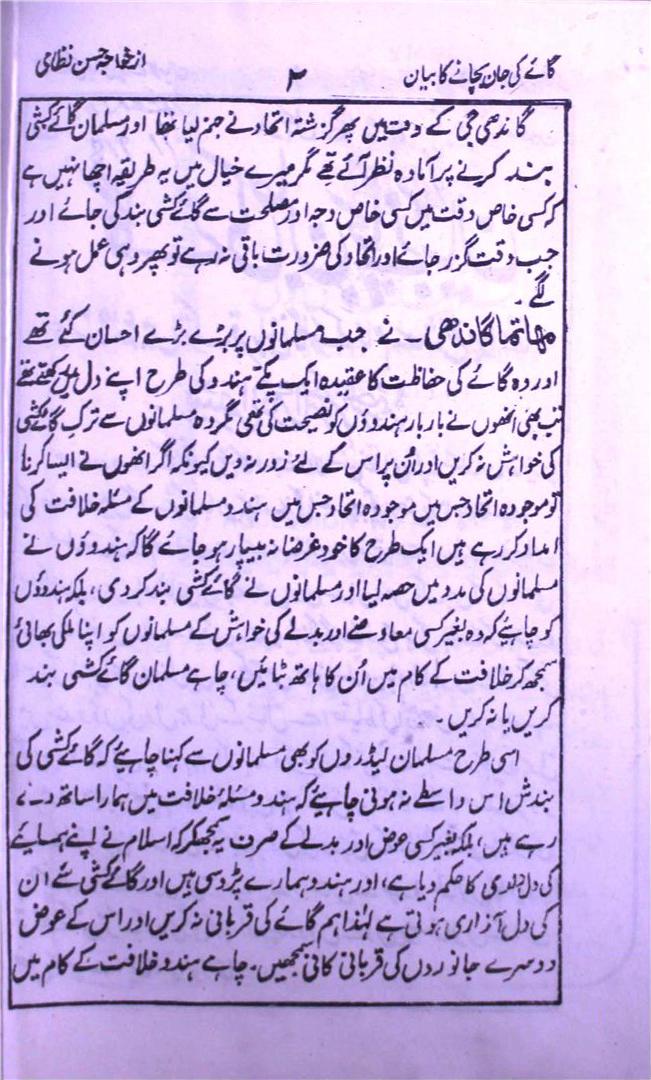 گائے کی جان بچانے کا بیان
۲
از خواجہ حسن نظامی
گاندھی جی کے وقت میں پھر گزشتہ اتحاد نے جنم لیا تھا اور مسلمان گائے کشی
بند کرنے پر آمادہ نظر آتے تھے مگر میرے خیال میں یہ طریقہ اچھا نہیں ہے
کہ کسی خاص وقت میں کسی خاص وجہ اور مصلحت سے گائے کشی بند کی جائے اور
جب وقت گزر جائے اور اتحاد کی ضرورت باقی نہ رہے تو پھر وہی عمل ہونے
لگے۔
مہاتما گاندھی۔ نے جب مسلمانوں پر بڑے بڑے احسان کئے تھے
اور وہ گائے کی حفاظت کا عقیدہ ایک پکے ہندو کی طرح اپنے دل میں رکھتے تھے
تب بھی انھوں نے بار بار ہندوؤں کو نصیحت کی تھی مگر وہ مسلمانوں سے ترک گائے کشی
کی خواہش نہ کریں اور اُن پر اس کے لئے زور نہ دیں کیونکہ اگر انھوں نے ایسا کرنا
تو موجودہ اتحاد جس میں موجودہ اتحاد جس میں ہندو مسلمانوں کے مسئلہ خلافت کی
امداد کر رہے ہیں ایک طرح کا خود غرضانہ بیپار ہو جائے گا کہ ہندوؤں نے
مسلمانوں کی مدد میں حصہ لیا اور مسلمانوں نے گائے کشی بند کر دی، بلکہ ہندوؤں
کو چاہئے کہ وہ بغیر کسی معاوضے اور بدلے کی خواہش کے مسلمانوں کو اپنا ملکی بھائی
سمجھ کر خلافت کے کام میں اُن کا ہاتھ بٹائیں، چاہے مسلمان گائے کشی بند
کریں یا نہ کریں۔
اسی طرح مسلمان لیڈروں کو بھی مسلمانوں سے کہنا چاہیئے کہ گائے کشی کی
بندش اس واسطے نہ ہونی چاہیئے کہ ہندو مسئلہ خلافت میں ہمارا ساتھ دے
رہے ہیں، بلکہ بغیر کسی عوض اور بدلے کے صرف یہ سمجھ کر کہ اسلام نے اپنے ہمسائے
کی دلداری کا حکم دیا ہے، اور ہندو ہمارے پڑوسی ہیں اور گائے کشی سے ان
کی دل آزاری ہوتی ہے لہٰذا ہم گائے کی قربانی نہ کریں اور اس کے عوض
دوسرے جانوروں کی قربانی کافی سمجھیں۔ چاہے ہندو خلافت کے کام میں